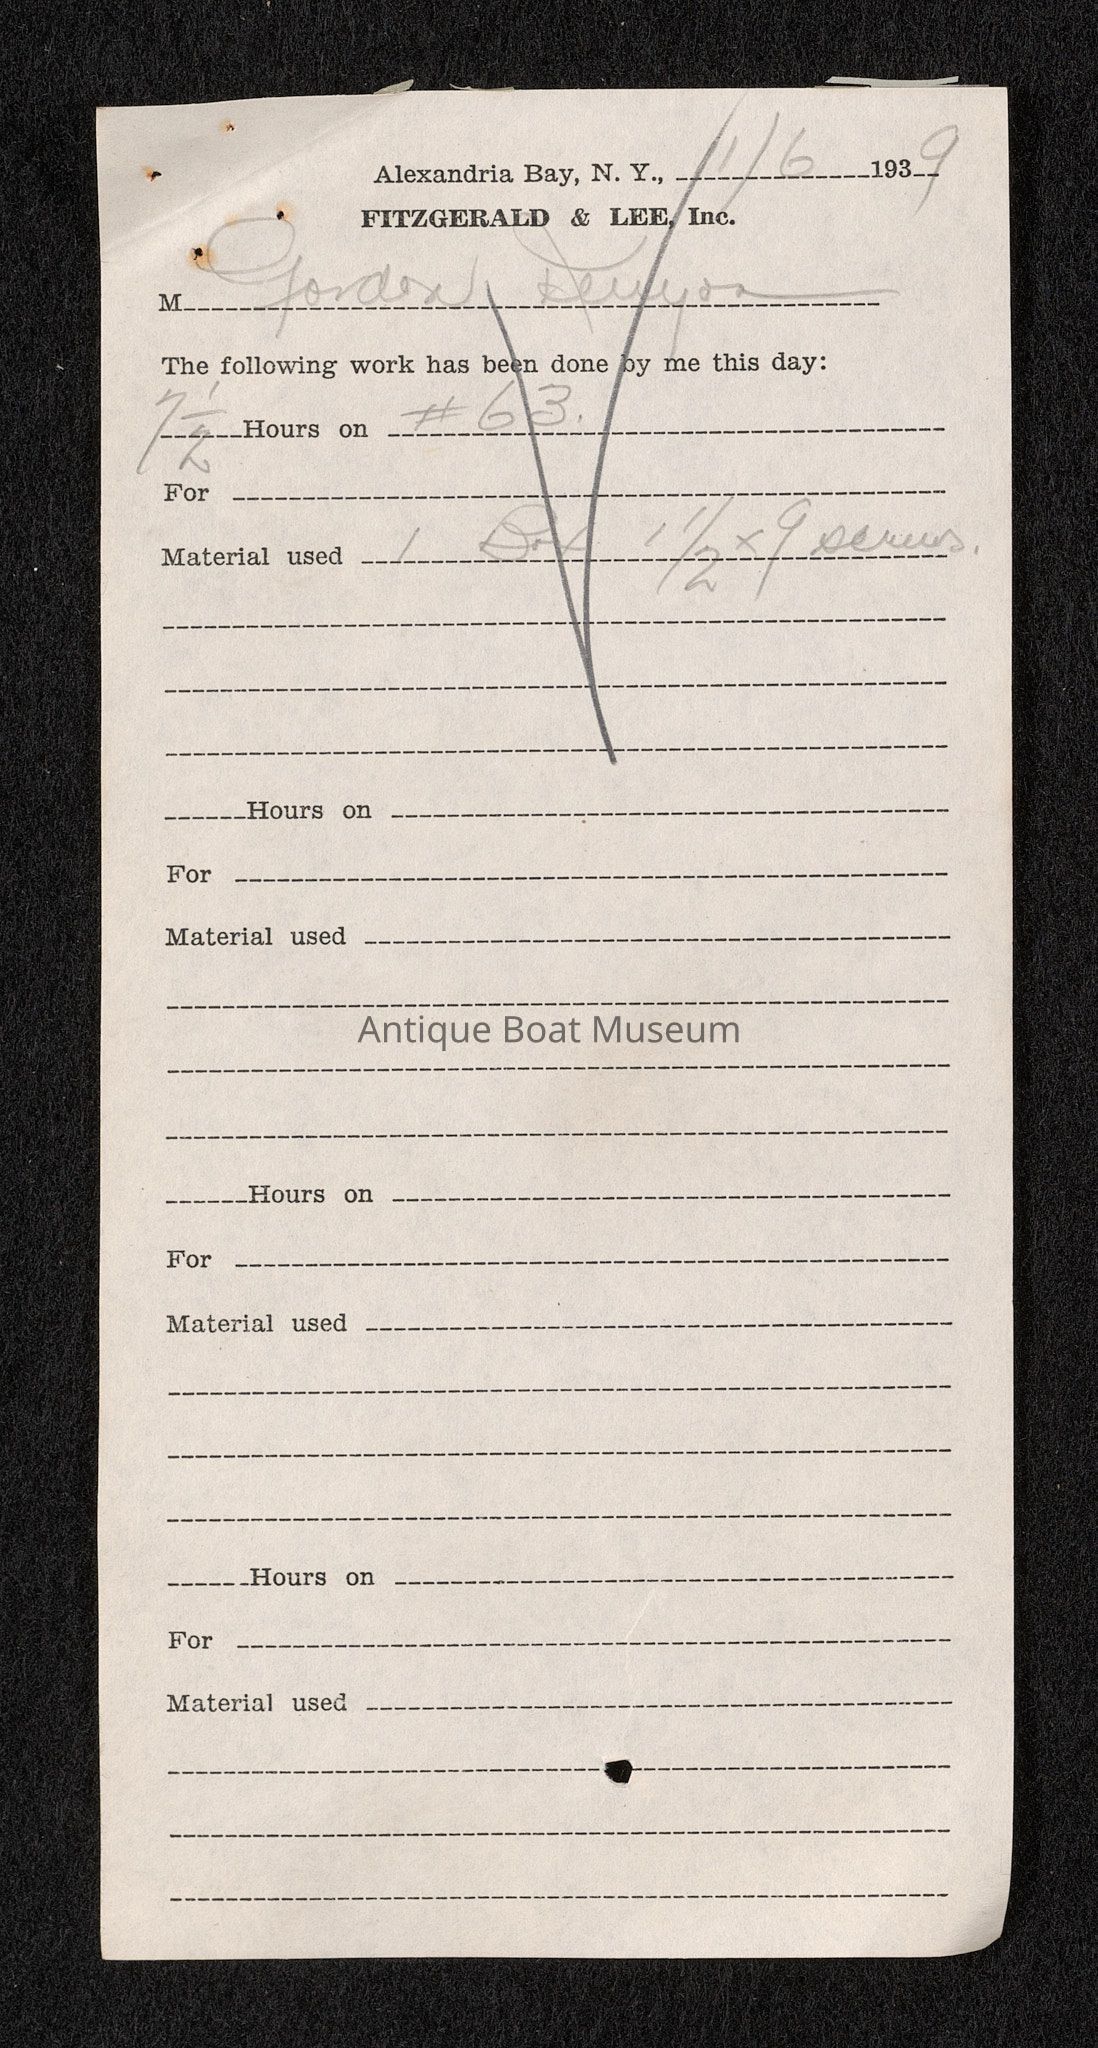 Alexandria Bay, N. Y., 11/6 1939
FITZGERALD & LEE, Inc.
M Gordon Kenyon
The following work has been done by me this day:
7 1/2 Hours on #63.
For
Material used 1 Box 1 1/2 x 9 screws.
Hours on
For
Material used
Antique Boat Museum
Hours on
For
Material used
Hours on
For
Material used